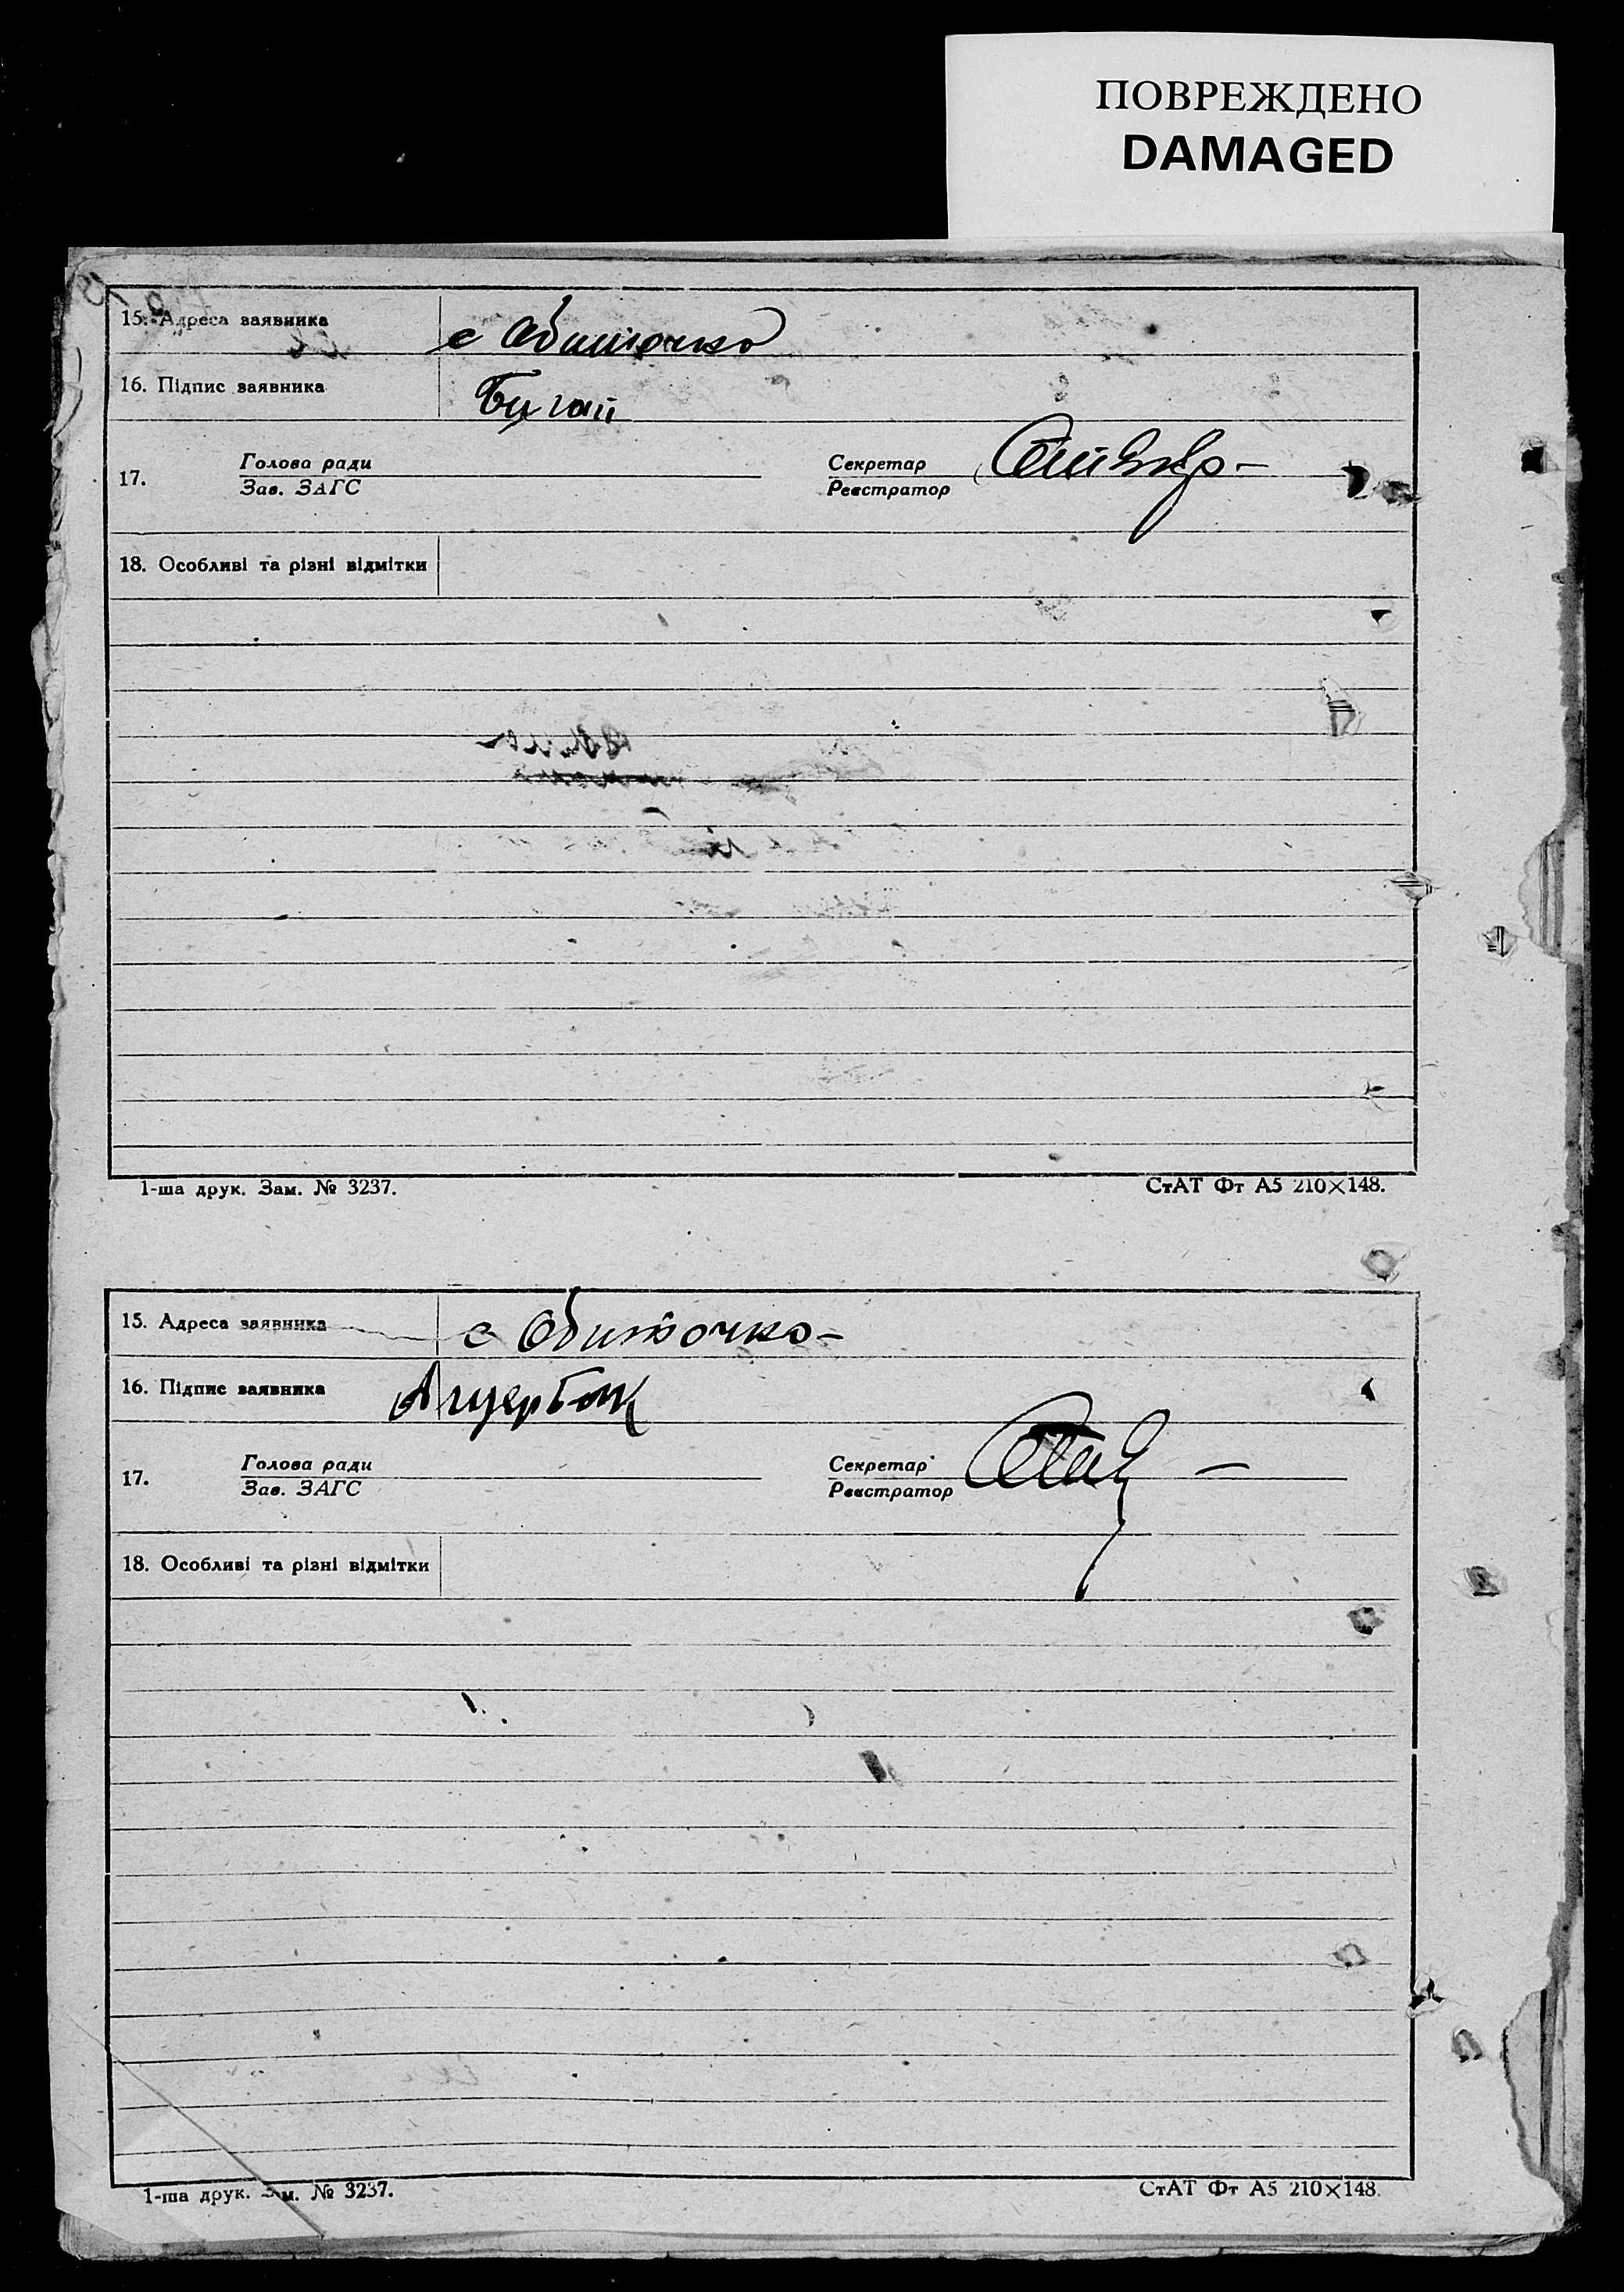 ПОВРЕЖДЕНО
DAMAGED
15. Адреса заявника с Обиточко
16. Підпис заявника
17. Голова ради Секретар
Зав. ЗАГС Реєстратор
18. Особливі та різні відмітки
1-ша друк. Зам. № 3237. СтАТ Фт А5 210×148.
15. Адреса заявника с Обиточко-
16. Підпис заявника
17. Голова ради Секретар
Зав. ЗАГС Реєстратор
18. Особливі та різні відмітки
1-ша друк. Зам. № 3237. СтАТ Фт А5 210×148.